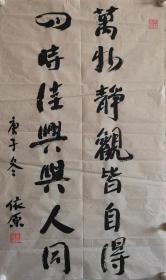 萬物靜觀皆自得
四時佳興與人同
庚子冬
依原